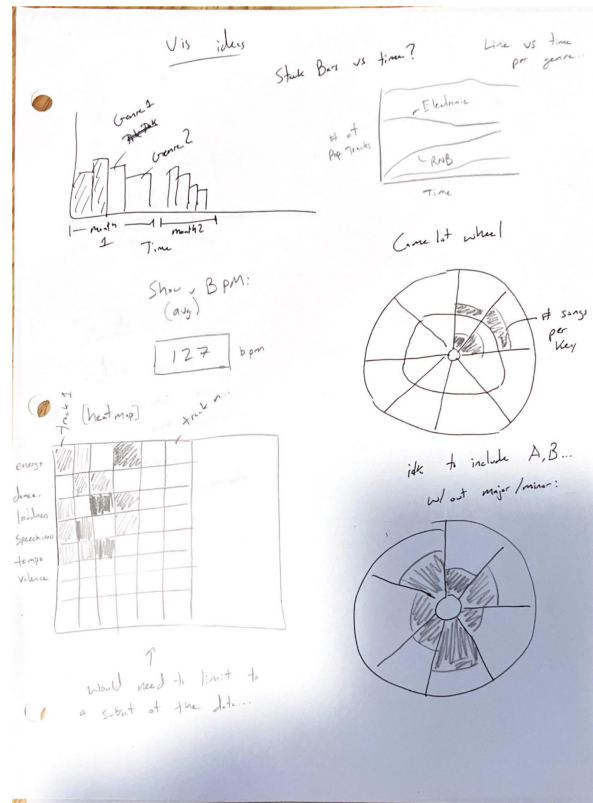 Vis ideas
Stack Bars vs time?
Line vs time
per genre...
Genre 1
Genre 2
month
1
month 2
Time
# of
Pop Tracks
Electronic
RNB
Time
Show BPM:
(avg)
127 bpm
Camelot wheel
# songs
per
Key
Track 1
[heatmap]
track n...
energy
dance.
loudness
speechiness
tempo
valence
would need to limit to
a subset of the data...
idk to include A,B...
w/out major/minor: